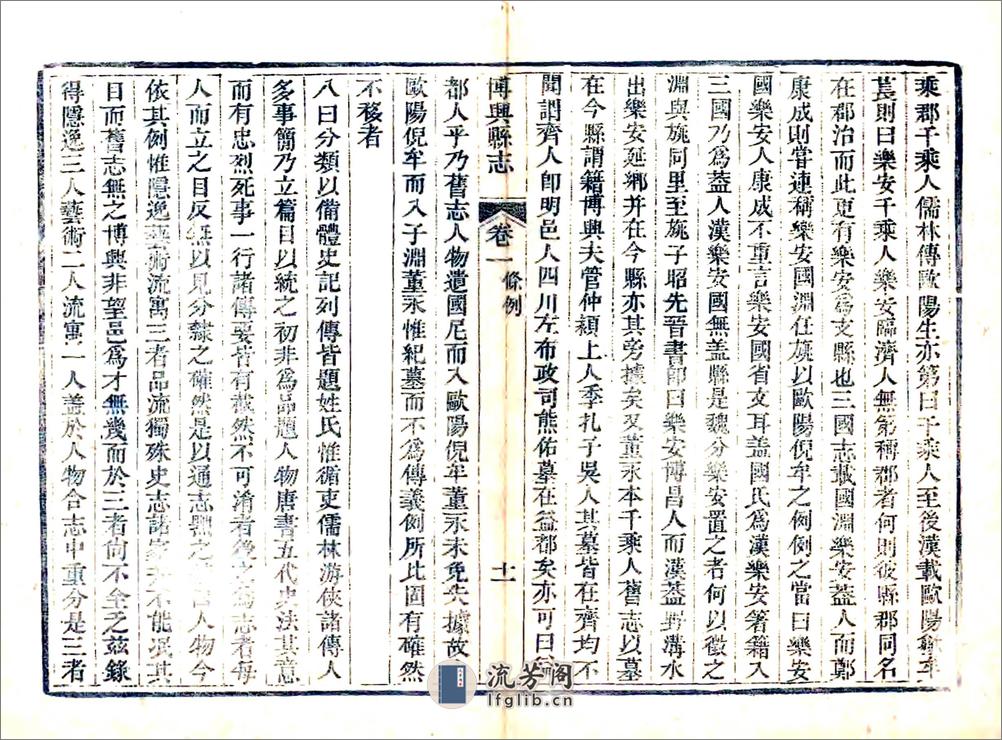 乘郡千乘人儒林傳歐陽生亦第曰千乘人至後漢載歐陽歙牟
萇則曰樂安千乘人樂安臨濟人無第稱郡者何則彼縣郡同名
在郡治而此更有樂安為支縣也三國志載國淵樂安葢人而鄭
康成則嘗連稱樂安國淵任旐以歐陽倪牟之例例之當曰樂安
國樂安人康成不重言樂安國省文耳盖國氏為漢樂安箸籍入
三國乃為葢人漢樂安國無盖縣是魏分樂安置之者何以徵之
淵與旐同里至旐子昭先晉書卽曰樂安博昌人而漢葢野溝水
出樂安延鄉并在今縣亦其旁據矣又董永本千乘人舊志以墓
在今縣謂籍博興夫管仲潁上人季札孔子吳人其墓皆在齊均不
聞謂齊人卽明邑人四川左布政司熊佑墓在益都矣亦可曰
都人乎乃舊志人物遺國尼而入歐陽倪牟董永未免失據故
歐陽倪牟而入子淵董永惟紀墓而不為傳義例所比固有確然
不移者
八曰分類以備體史記列傳皆題姓氏惟循吏儒林游俠諸傳人
多事簡乃立篇目以統之初非為品題人物唐書五代史法其意
而有忠烈死事一行諸傳要皆有截然不可淆者後之為志者每
人而立之目反無以見分隸之確然是以通志縣之人物今
依其例惟隱逸藝術流寓三者品流獨殊史志諸家不能泯其
目而舊志無之博興非望邑為才無幾而於三者尚不全乏茲錄
得隱逸三人藝術二人流寓一人葢於人物合志中重分是三者
博興縣志
卷一
條例
十一
流芳阁
lfglib.cn